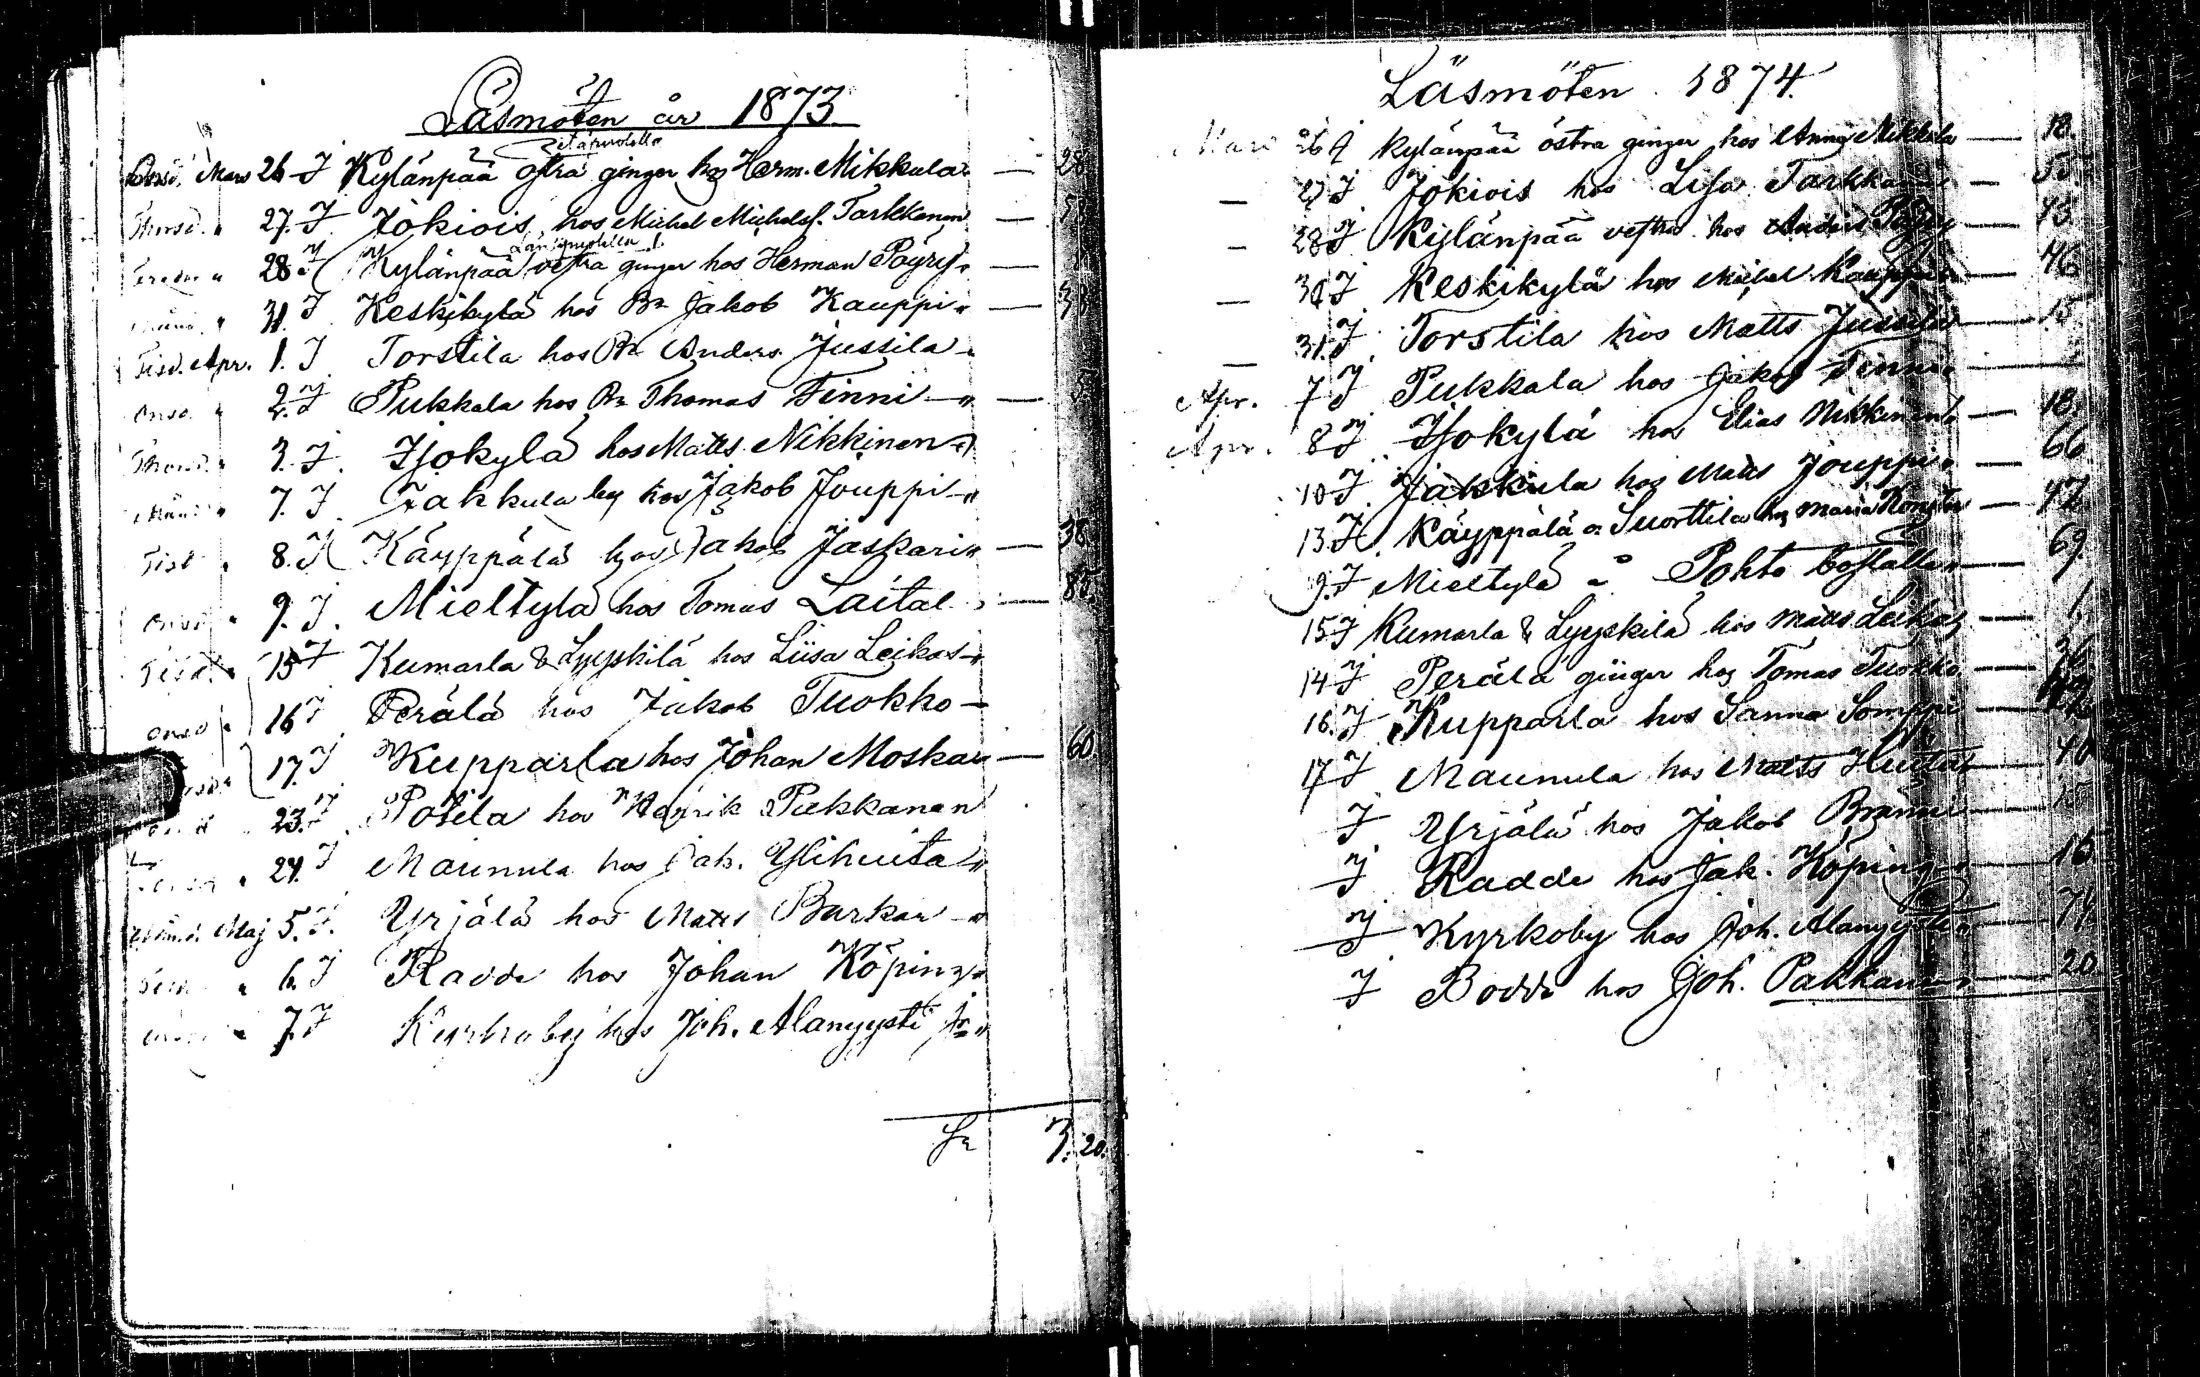 Läsmöten år 1873.
Mars 26 J Kylänpää östra ginger hos Herm. Mikkula — 28
Thorsd. " 27. J Jokiois hos Michel Michelsf. Tarkkanen —
Fredn " 28 J Kylänpää vestra ginger hos Herman Pöyry —
" 31. J Keskikylä hos Bn Jakob Kauppi "
Tisd. Apr. 1. J Torstila hos Bn Anders Jussila
Onsd. " 2. J Pukkala hos Bn Thomas Finni — "
Thorsd. " 3. J. Ijokylä hos Matts Nikkinen
Månd " 7. J Jakkula by hos Jakob Jouppi — "
Tisd " 8. J Käyppälä hos Jakob Jaskari " — 38
Onsd " 9. J. Mieltylä hos Tomas Laital — 85.
Tisd. " 15 J Kumarla & Lyyskilä hos Liisa Leikas — "
Onsd " 16 J Perälä hos Jakob Tuokko —
17. J Kupparla hos Johan Moskar — 60.
23. J Potila hos Henrik Pukkanen
" 24. J Maunula hos Jak. Ylihuita "
Månd. Maj 5. J. Yrjälä hos Matts Barkar — "
" 6. J Radde hos Johan Köping "
" 7. J Kyrkoby hos Joh. Alanyysti
7. 20.
Läsmöten 1874.
Mars 26 J Kylänpää östra ginger hos Anna Mikkula — 18.
— 27 J Jokiois hos Lisa Tarkkanen — 55.
— 28 J Kylänpää vestra hos Anders Pöyry — 45.
— 30 J Keskikylä hos Michel Kauppi — 46
— 31. J Torstila hos Matts Jussila — 15
Apr. 7 J Pukkala hos Jakob Finni —
Apr. 8 J Ijokylä hos Elias Nikkinen — 18.
10 J Jakkula hos Matts Jouppi " — 66.
13. J. Käyppälä o. Suorttila hos Maria — 47.
9. J Mieltylä å Pohto boställe — 69.
15. J Kumarla & Lyyskilä hos Matts Leikas — 1.
14. J Perälä ginger hos Tomas Tuokko —
16. J Kupparla hos Sanna Somppi —
17 J Maunula hos Matts Huita — 40
J Yrjälä hos Jakob Bränni — 15
J Radde hos Jak. Köping — 16
J Kyrkoby hos Joh. Alanyysti — 74.
J Bodde hos Joh. Pakkanen — 20